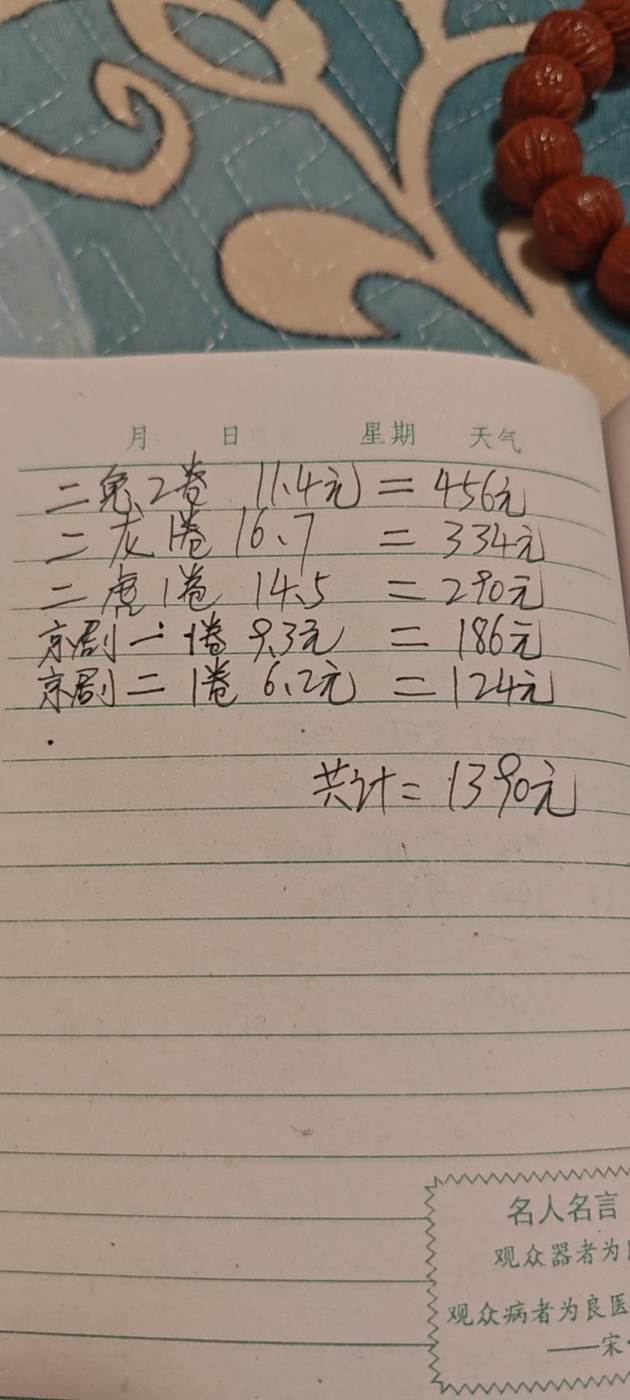 月 日 星期 天气
二兔2卷 11.4元 = 456元
二龙1卷 16.7 = 334元
二虎1卷 14.5 = 290元
京剧一 1卷 9.3元 = 186元
京剧二 1卷 6.2元 = 124元
共计 = 1390元
名人名言
观众器者为
观众病者为良医
——宋